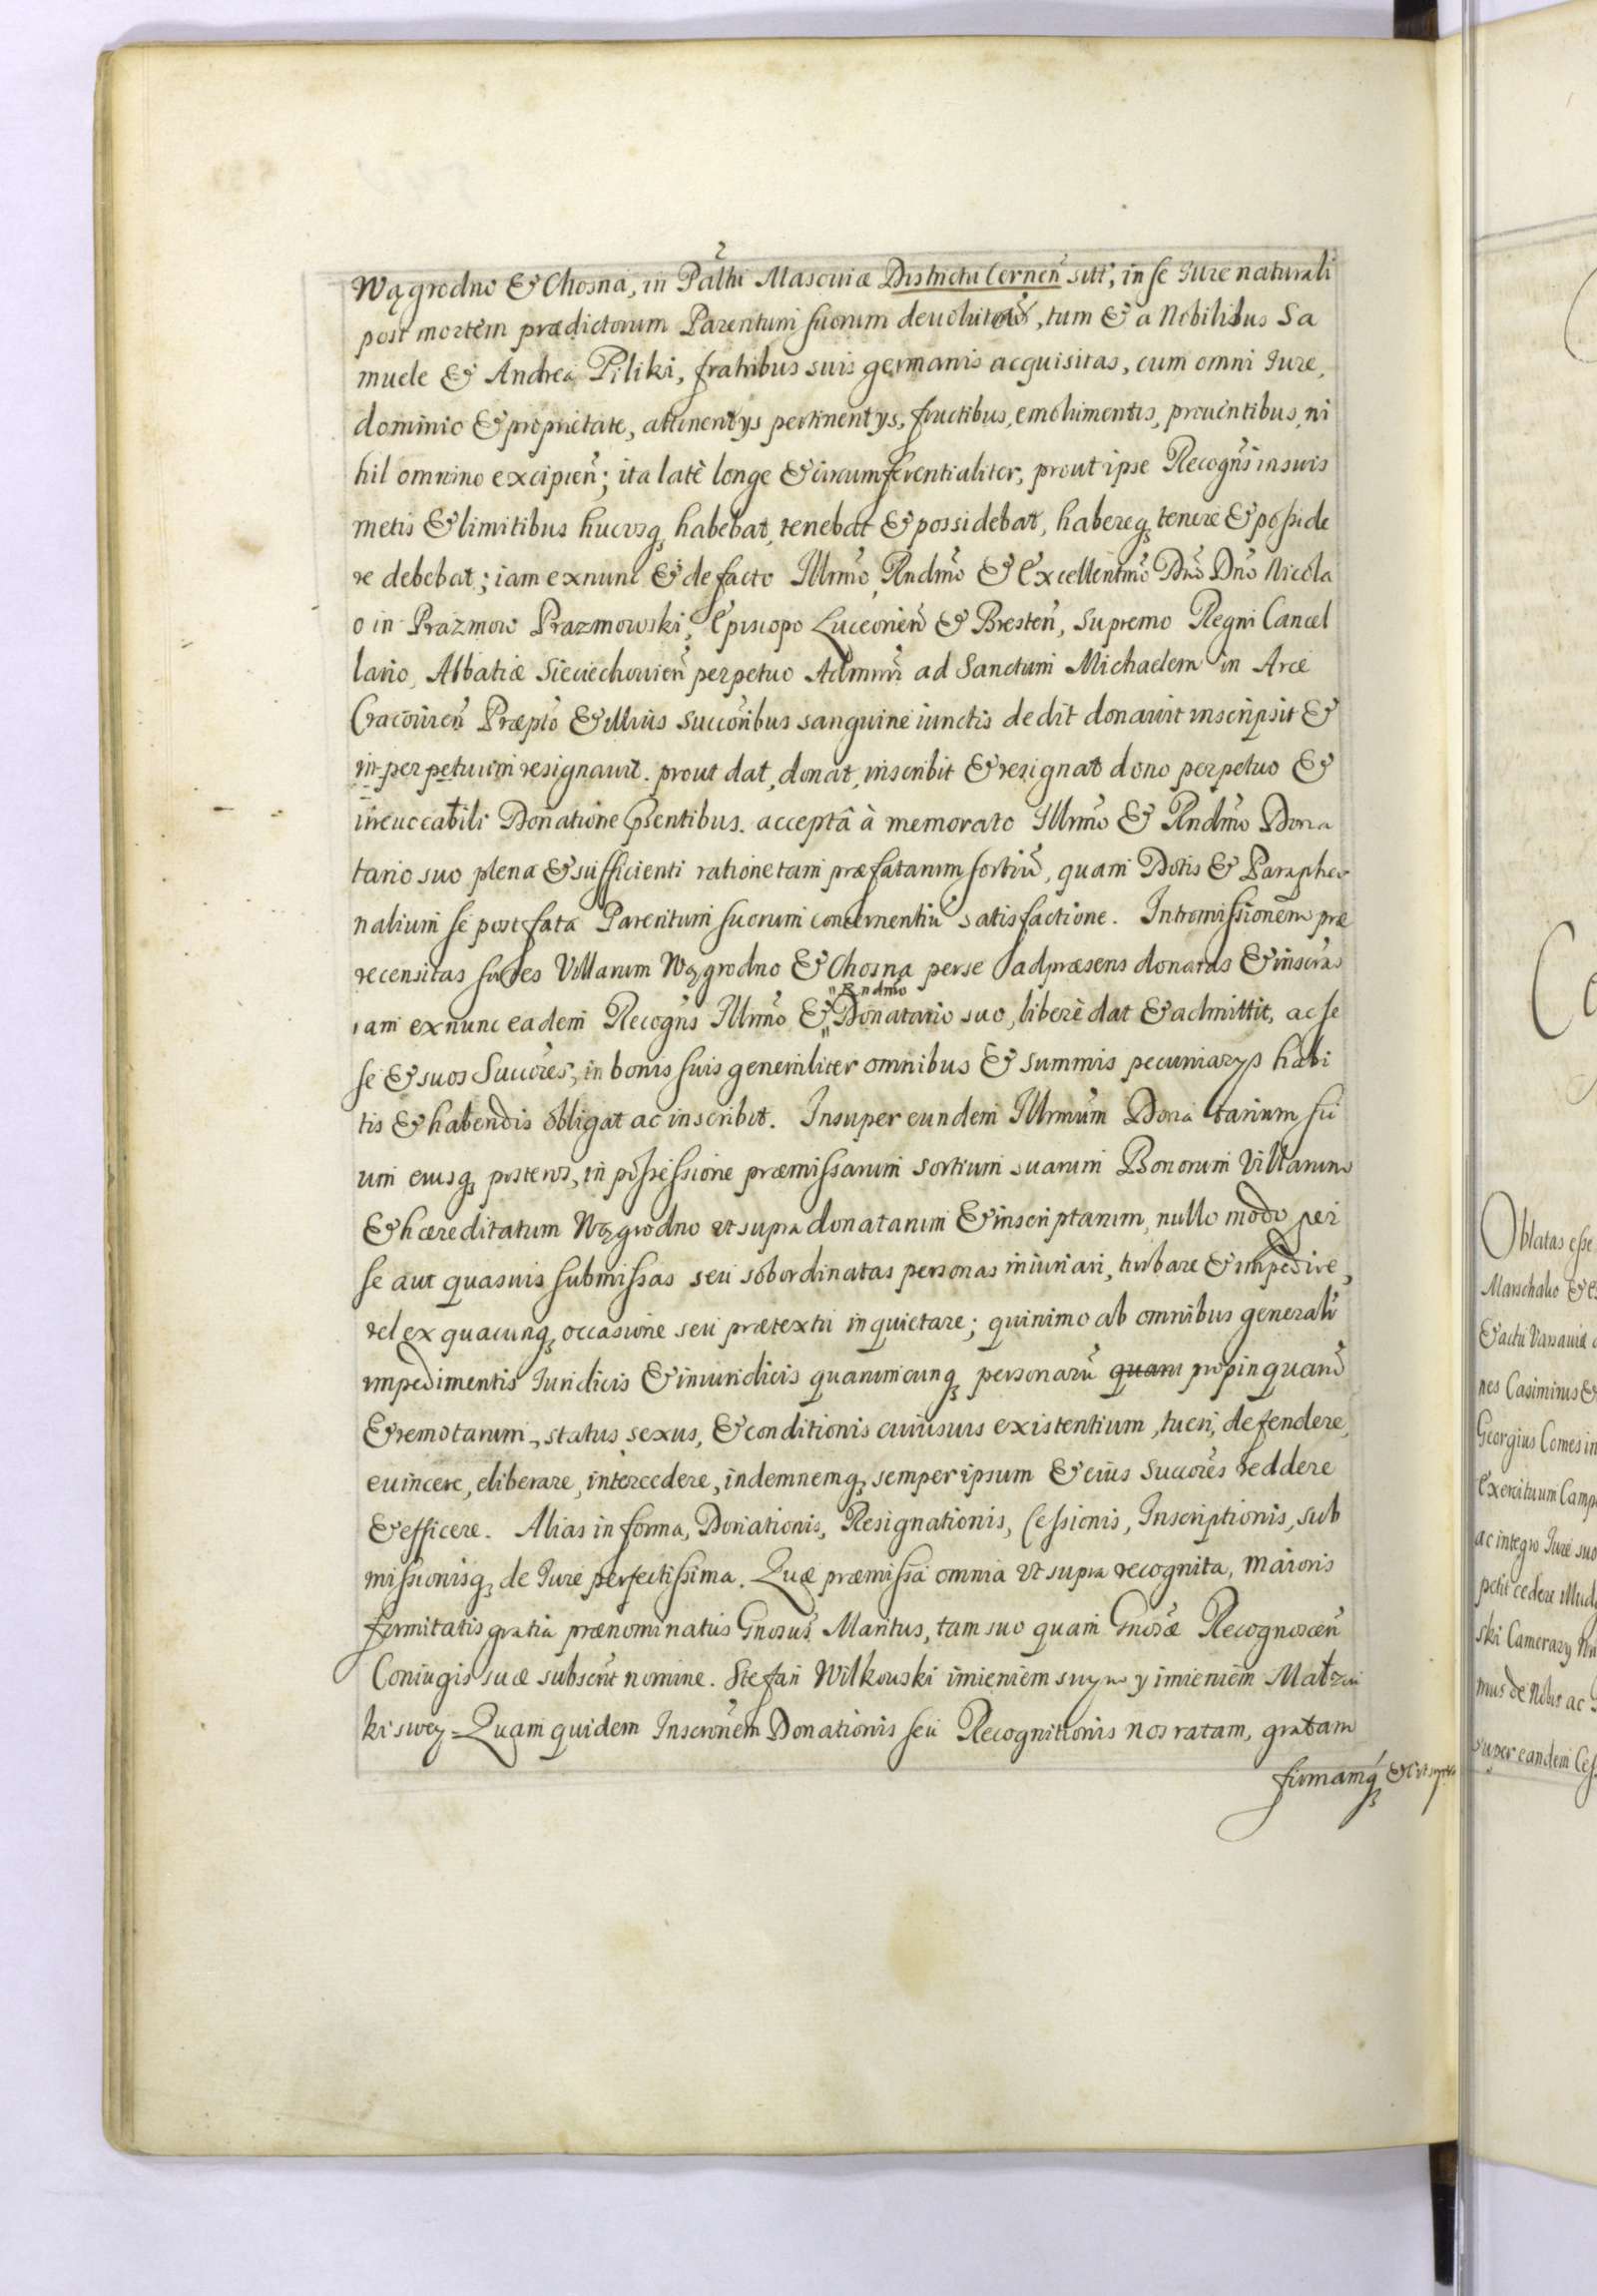 Wągrodno & Chosna, in Palthi Masouiæ Districtu Cernen̄ siti, in se Iure naturali
post mortem prædictorum Parentum suorum deuolutas, tum & a Nobilibus Sa
muele & Andrea Piliki, fratribus suis germanis acquisitas, cum omni Iure,
dominio & proprietate, attinentys pertinentys, fructibus, emolumentis, prouentibus, ni
hil omnino excipien̄; ita latè longe & circumferentialiter, prout ipse Recogn̄s in suis
metis & limitibus hucusq, habebat, tenebat & possidebat, habereq, tenere & posside
re debebat; iam exnunc & de facto Illrmo, Rndmo & Excellentmo Dno Dno Nicola
o in Prazmow Prazmowski, Episcopo Luceorien̄ & Bresten̄, Supremo Regni Cancel
lario, Abbatiæ Sieciechouien̄ perpetuo Admrri ad Sanctum Michaelem in Arce
Cracouien̄ Præpto & illius succoribus sanguine iunctis dedit donauit inscripsit &
in perpetuum resignauit. prout dat, donat, inscribit & resignat dono perpetuo &
irreuocabili Donatione pn̄tibus. acceptâ à memorato Illrmo & Rndmo Dona
tario suo plena & sufficienti ratione tam præfatarum sortiū, quam Dotis & Parapher
nalium se post fata Parentum suorum concernentiū satisfactione. Intromissionem præ
recensitas sortes Villarum Wągrodno & Chosna per se ad præsens donatas & inscrās
iam exnunc eadem Recogn̄s Illrmo & "Rndmo" Donatario suo, liberè dat & admittit, ac se
se & suos Succores, in bonis suis generaliter omnibus & summis pecuniarys habi
tis & habendis obligat ac inscribit. Insuper eundem Illrmum Donatarium su
um eiusq, posteros, in possessione præmissarum sortium suarum Bonorum Villarum
& hæreditatum Wągrodno vt supra donatarum & inscriptarum, nullo modo per
se aut quasuis submissas seu sobordinatas personas iniuriari, turbare & impedire,
vel ex quacunq, occasione seu prætextu inquietare; quinimo ab omnibus generali
impedimentis Iuridicis & iniuridicis quarumcunq, personarū quam propinquarū
& remotarum, status, sexus, & conditionis cuiusuis existentium, tueri, defendere,
euincere, eliberare, intercedere, indemnemq, semper ipsum & eius Succores reddere
& efficere. Alias in forma, Donationis, Resignationis, Cessionis, Inscriptionis, sub
missionisq, de Iure perfectissima. Quæ præmissa omnia vt supra recognita, maioris
firmitatis gratia prænominatus Gnosus Maritus, tam suo quam Gnosæ Recognoscen̄
Coniugis suæ subscrīt nomine. Stefan Wilkowski imieniem swym y imieniem Małzą
ki swey = Quam quidem Inscrōnem Donationis seu Recognitionis nos ratam, gratam
firmamq,

Oblatas esse
Marschalco &
& actu Varsauiæ
nes Casimirus &
Georgius Comes in
Exercituum Camp
ac integro Iure suo
petit cedere illud
ski Camerary
mus de Nobis ac
super eandem Ces